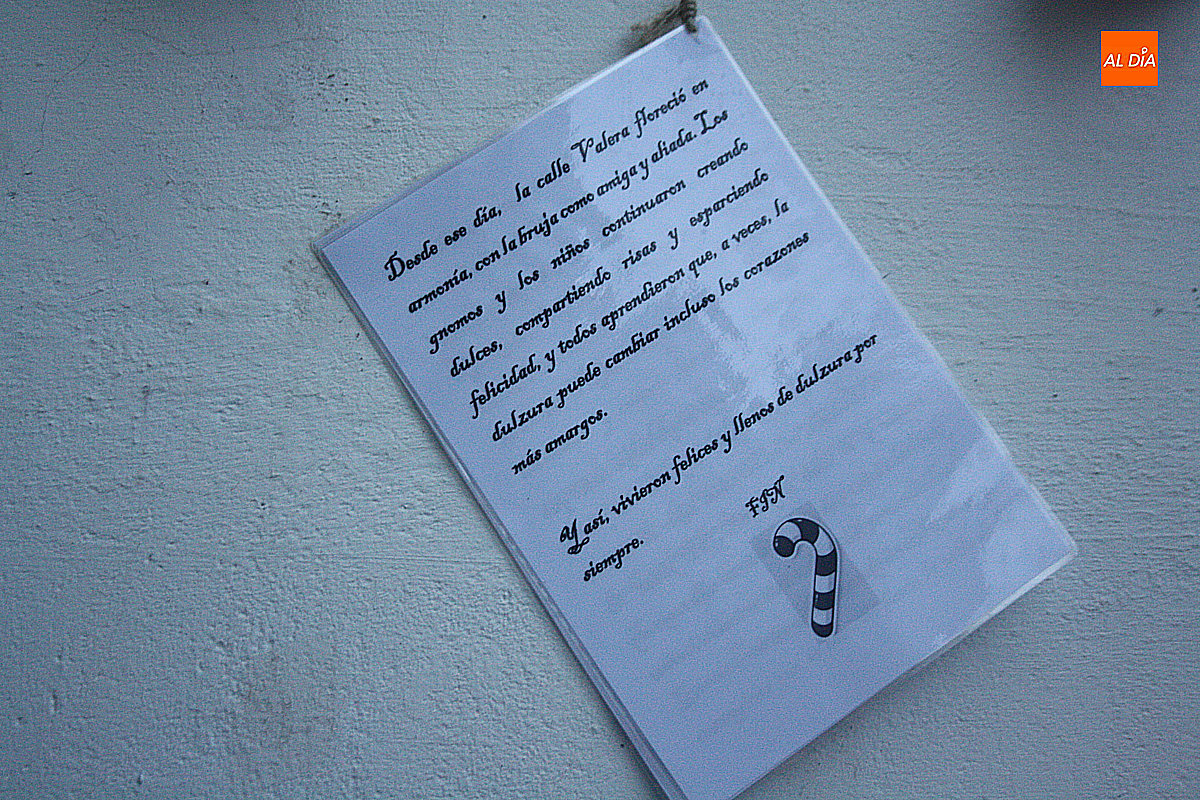 AL DÍA
Desde ese día, la calle Valera floreció en
armonía, con la bruja como amiga y aliada. Los
gnomos y los niños continuaron creando
dulces, compartiendo risas y esparciendo
felicidad, y todos aprendieron que, a veces, la
dulzura puede cambiar incluso los corazones
más amargos.
Y así, vivieron felices y llenos de dulzura por
siempre.
FIN